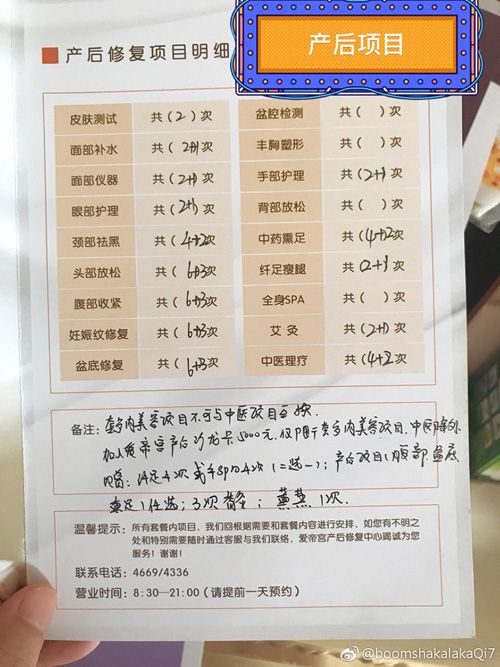 产后修复项目明细
产后项目
皮肤测试 共（2）次 盆腔检测 共（ ）次
面部补水 共（2+1）次 丰胸塑形 共（ ）次
面部仪器 共（2+1）次 手部护理 共（2+1）次
眼部护理 共（2+1）次 背部放松 共（ ）次
颈部祛黑 共（4+2）次 中药熏足 共（4+2）次
头部放松 共（6+3）次 纤足瘦腿 共（2+1）次
腹部收紧 共（6+3）次 全身SPA 共（ ）次
妊娠纹修复 共（6+3）次 艾灸 共（2+1）次
盆底修复 共（6+3）次 中医理疗 共（4+2）次
备注：套餐内美容项目不可与中医项目互换.
加入爱帝宫产后沙龙卡5000元,仅限于套餐内美容项目,中医除外
4次 4次（二选一）；产后项目：腹部 盆底
任选；3次 ；1次.
温馨提示：所有套餐内项目，我们回根据需要和套餐内容进行安排，如您有不明之
处和特别需要随时通过客服与我们联络，爱帝宫产后修复中心竭诚为您
服务！谢谢！
联系电话：4669/4336
营业时间：8:30—21:00（请提前一天预约）
@boomshakalakaQi7